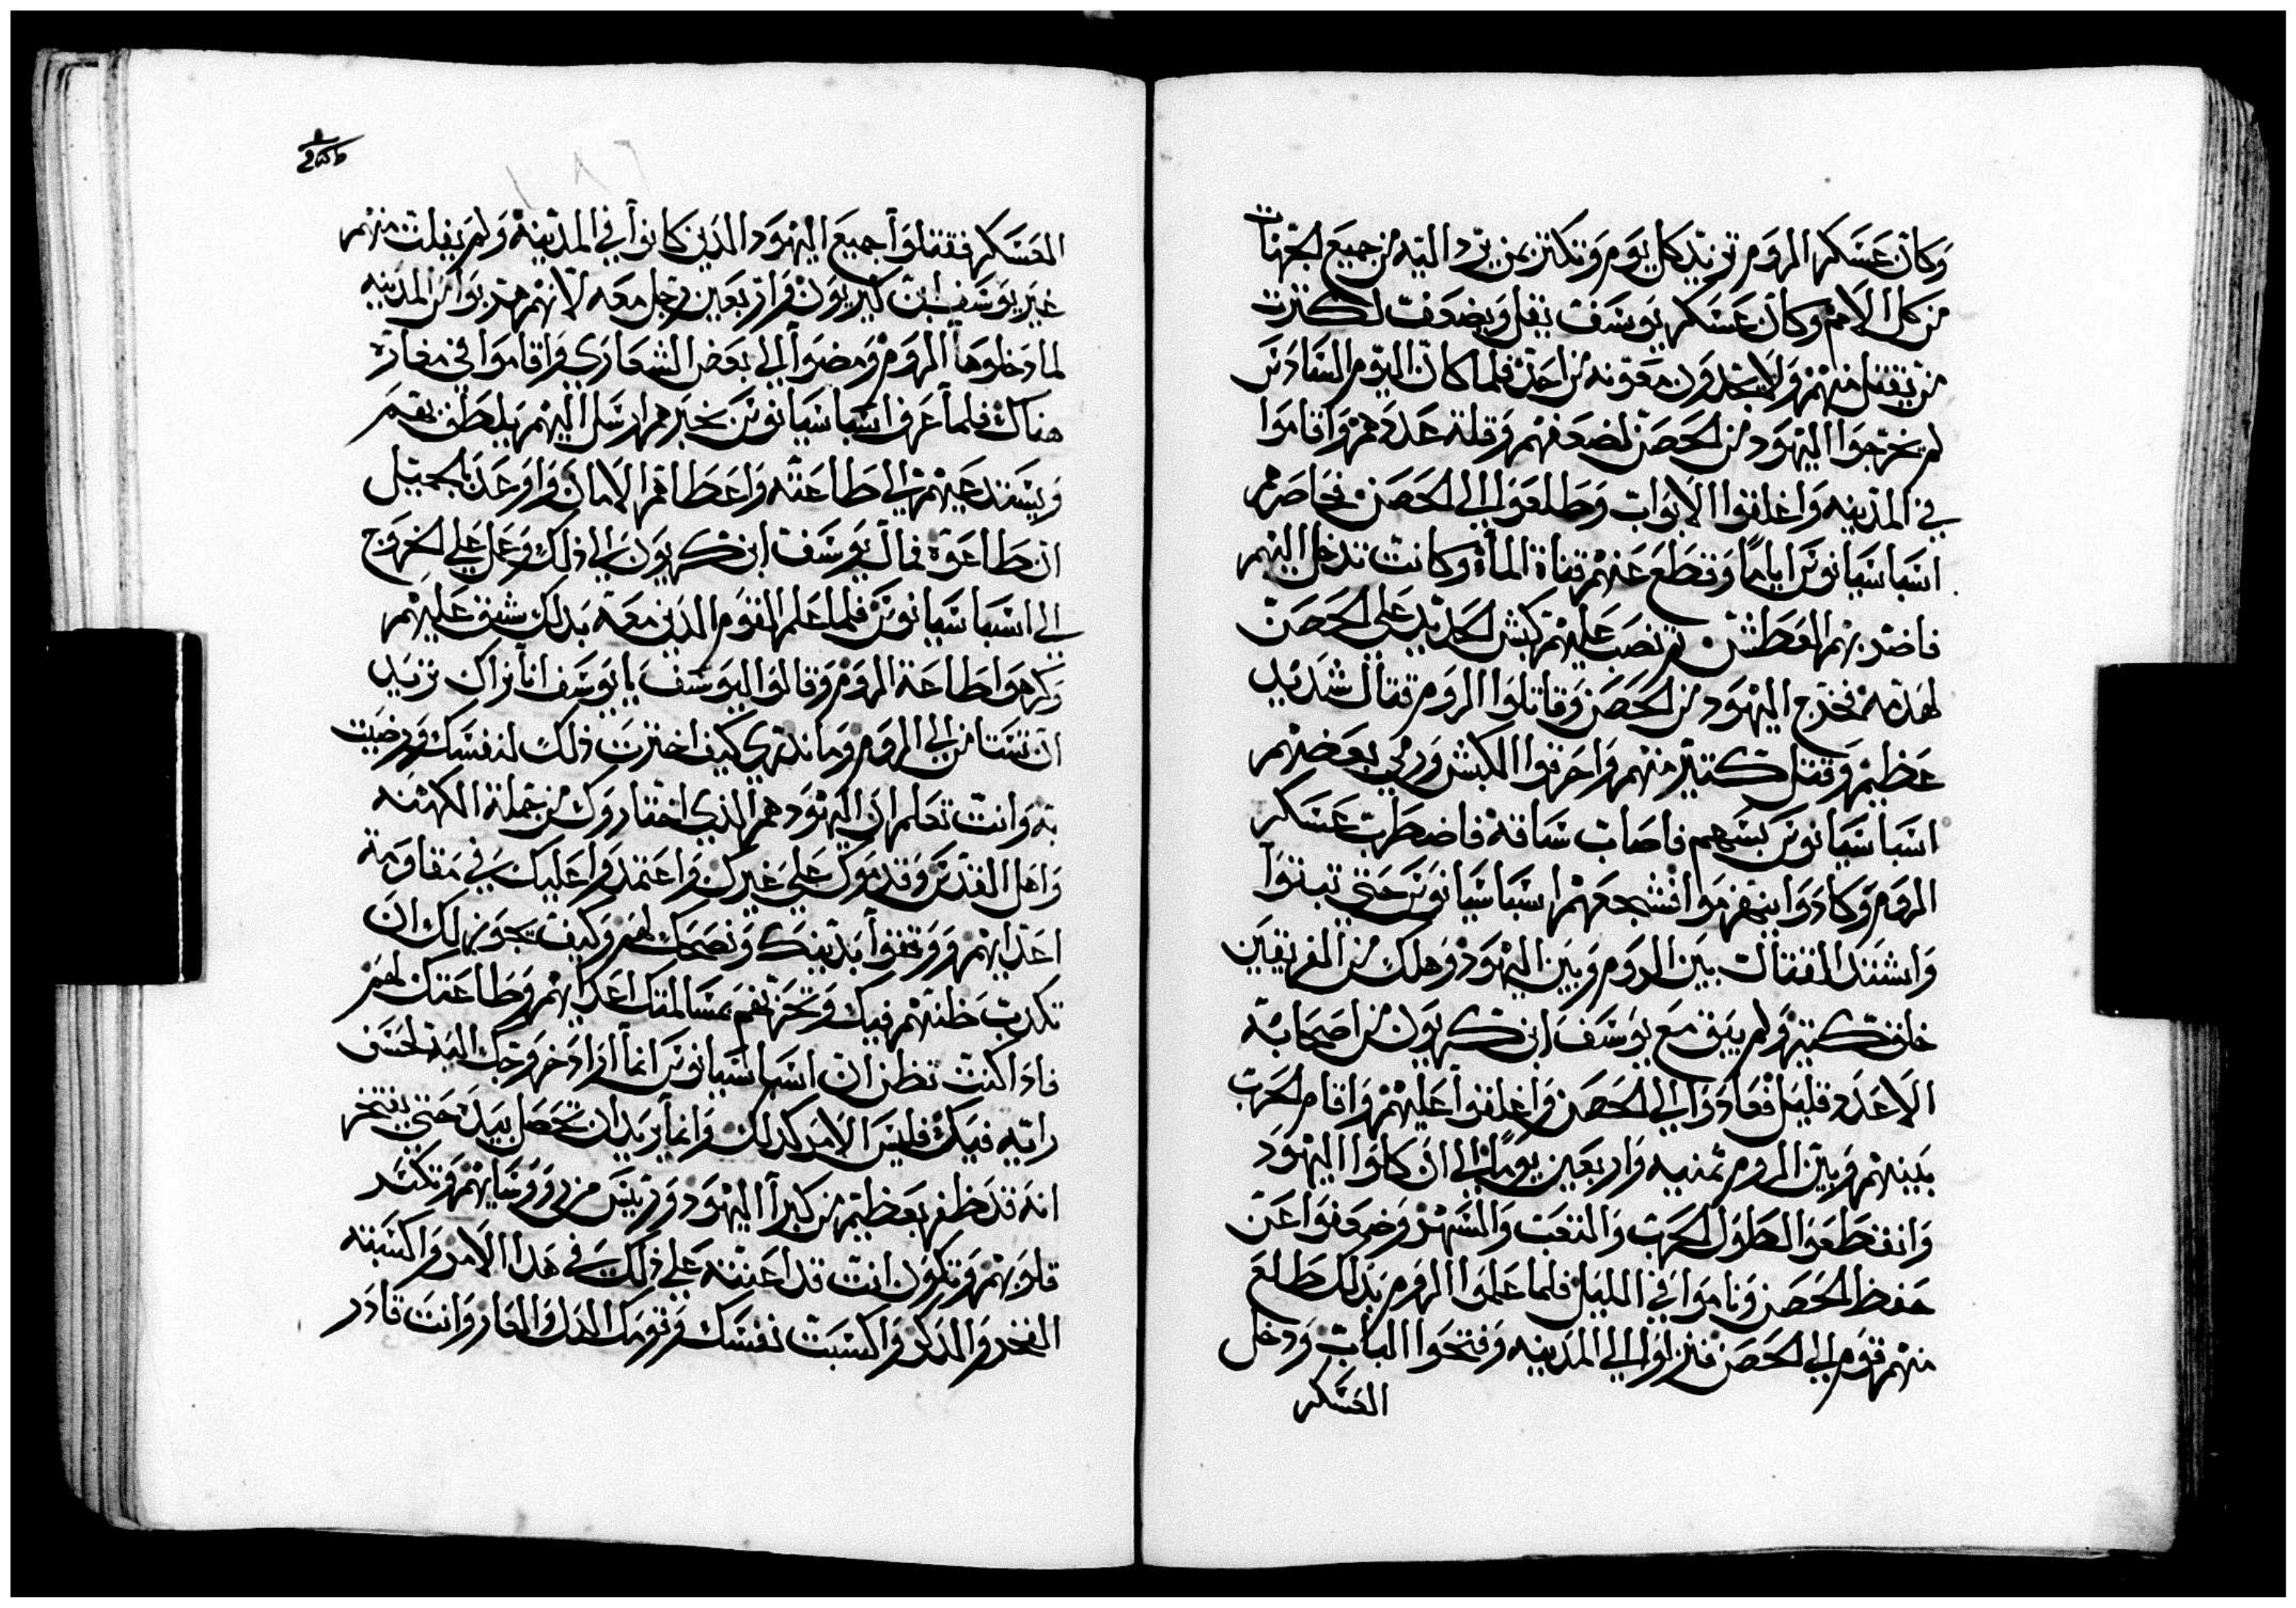 وكان عسكر الروم تزيد كل يوم وتكثر بمن يرد اليه من جميع الجهات
من كل الامم وكان عسكر يوسف يقل ويضعف لكثرت
من يقتل منهم ولا يجدون معونه من احد فلما كان اليوم السادس
لم يخرجوا اليهود من الحصن لضعفهم وقلة عددهم واقاموا
في المدينه واغلقوا الابواب وطلعوا الى الحصن فحاصرهم
اسباسيانوس اياما وقطع عنهم قناة الماء وكانت تدخل اليهم
فاضر بهم العطش ثم نصب عليهم كبش الحديد على الحصن
لهدمه فخرج اليهود من الحصن وقاتلوا الروم قتال شديد
عظيم وقتل كتير منهم واحرقوا الكبش ورمي بعضهم
اسباسيانوس بسهم فاصاب ساقه فاضطرب عسكر
الروم وكادوا ينهزموا فشجعهم اسباسيانوس حتى تبتوا
واشتد القتال بين الروم وبين اليهود وهلك من الفريقين
خلق كتير ولم يبق مع يوسف ابن كريون من اصحابه
الا عدد قليل فعادوا الي الحصن واغلقوا عليهم واقام الحرب
بينهم وبين الروم تمنيه واربعين يوما الي ان كلوا اليهود
وانقطعوا لطول الحرب والتعب والسهر وضعفوا عن
حفظ الحصن وناموا في الليل فلما علموا الروم بذلك طلع
منهم قوم الي الحصن فنزلوا الي المدينه وفتحوا الباب ودخل
العسكر
العسكر فقتلوا جميع اليهود الذين كانوا في المدينه ولم يفلت منهم
غير يوسف ابن كريون واربعين رجل معه لانهم هربوا من المدينه
لما دخلوها الروم ومضوا الي بعض الشعاري واقاموا في مغارة
هناك فلما عرف اسباسيانوس بخبرهم ارسل اليهم يلطف بهم
ويستدعيهم الي طاعته واعطاهم الامان واوعد بالجميل
ان طاعوه فمال يوسف ابن كريون الي ذلك وعمل علي الخروج
الي اسباسيانوس فلما علم القوم الذين معه بذلك شق عليهم
وكرهوا طاعة الروم وقالوا ليوسف يا يوسف انا نراك تريد
ان تستامن الي الروم وما ندري كيف اخترت ذلك لنفسك ورضيت
به وانت تعلم ان اليهود هم الذي اختاروك من جملة الكهنه
واهل القدس وقدموك علي غيرك واعتمدوا عليك في مقاومة
اعدايهم ووتقوا بدينك ونصحك لهم وكيف يجوز لك ان
تكدب ظنهم فيك وتحزنهم بمسالمتك اعدايهم وطاعتك لهم
فاذا كنت تظن ان اسباسيانوس انما اراد خروجك اليه لحسن
رايه فيك فليس الامر كدلك وانما يريد ان تحصل بيده حتى يفتخر
انه قد ظفر بعظيم من كبرا اليهود وريس من رووسايهم وتكسر
قلوبهم وتكون انت قد اعنته علي ذلك في هدا الامر واكسبته
الفخر والدكر واكسبت نفسك وقومك الدل والعار وانت قادر